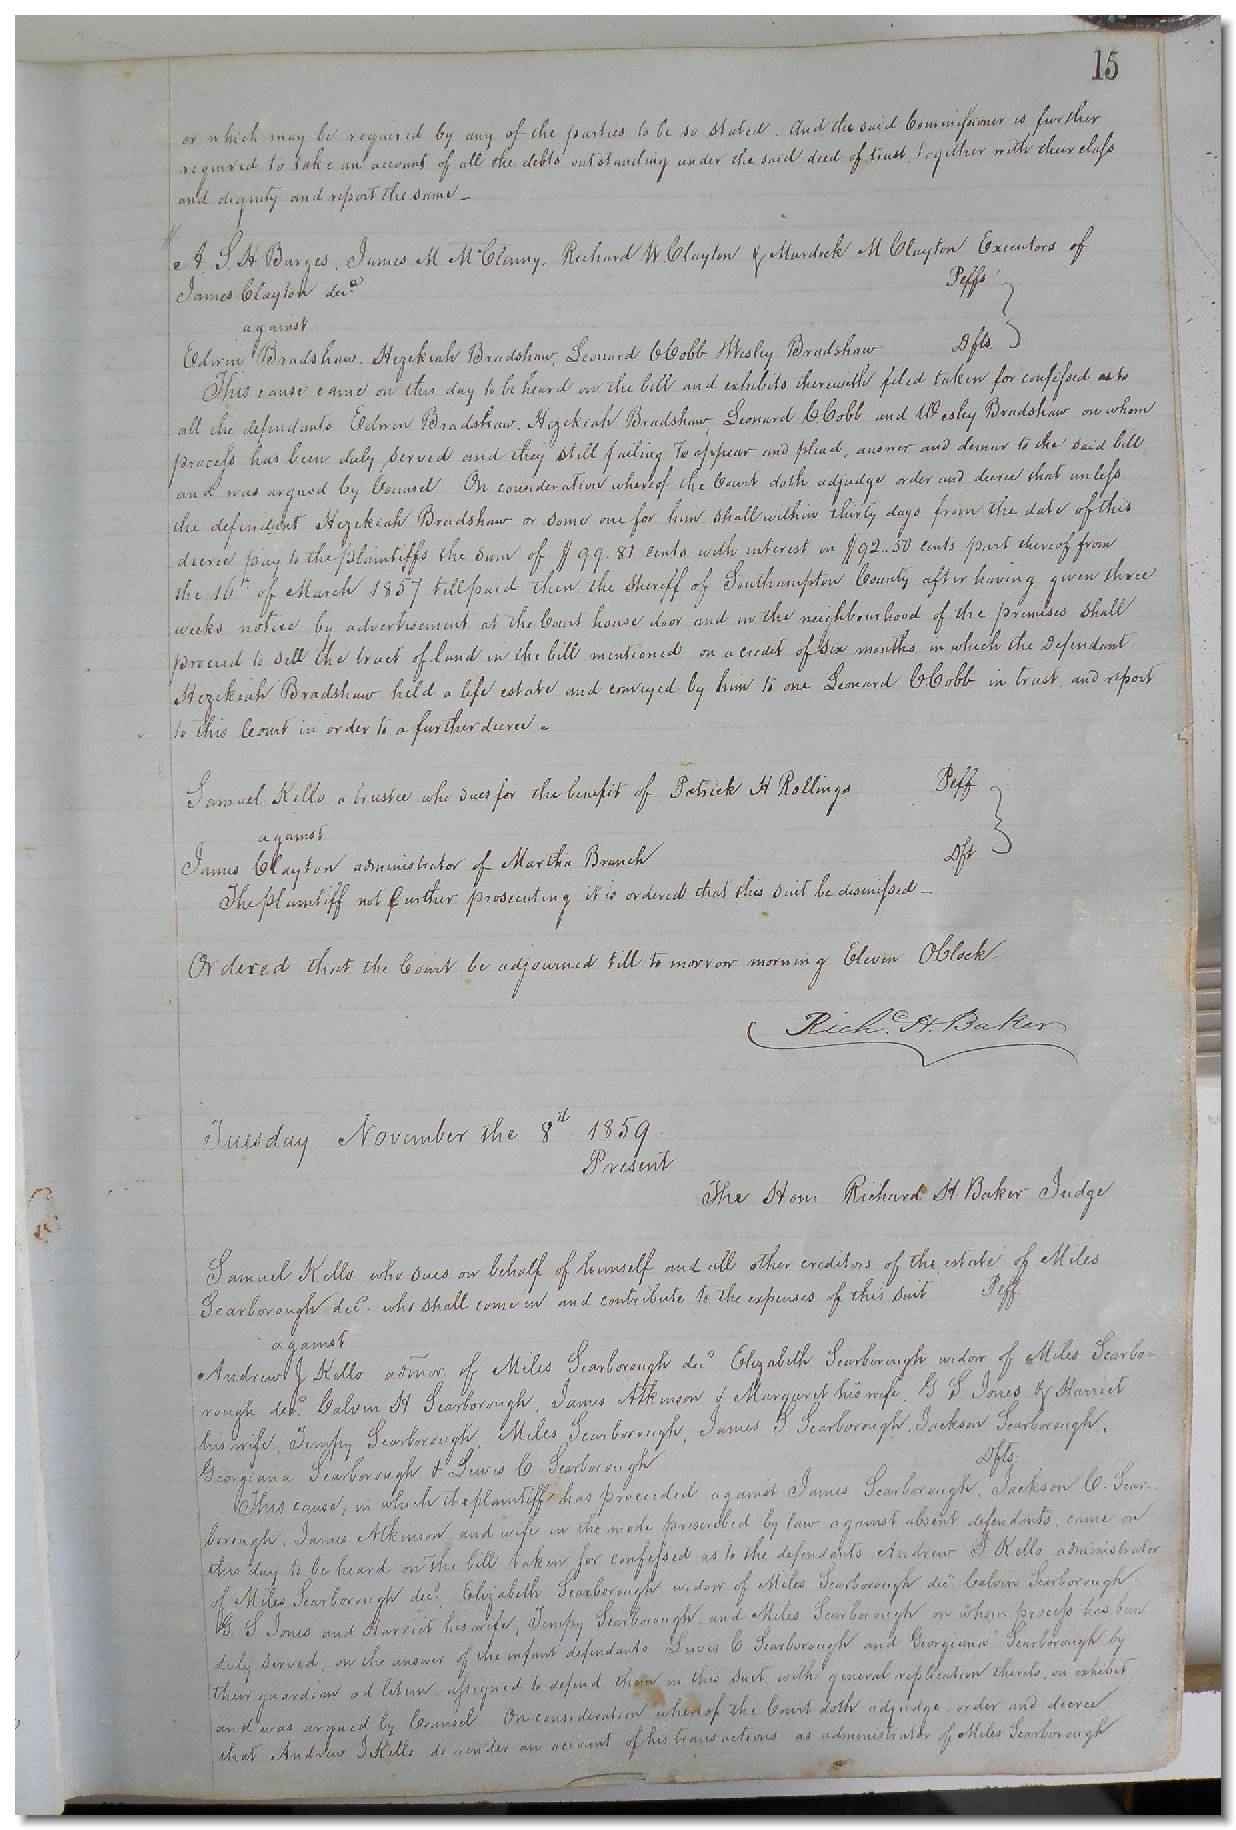 15
or which may be required by any of the parties to be so stated. And the said Commissioner is further
required to take an account of all the debts outstanding under the said deed of trust, together with their class
and dignity and report the same –
A. S. H. Burges, James M McClenny, Richard W Clayton & Murdock M Clayton Executors of
James Clayton decd Peffs
against
Edwin Bradshaw. Hezekiah Bradshaw, Leonard C Cobb Wesley Bradshaw Dfts.
This cause came on this day to be heard on the bill and exhibits therewith filed taken for confessed as to
all the defendants Edwin Bradshaw, Hezekiah Bradshaw, Leonard C Cobb and Wesley Bradshaw on whom
process has been duly served and they still failing to appear and plead, answer and demur to the said bill
and was argued by Counsel On consideration whereof the Court doth adjudge order and decree that unless
the defendant Hezekiah Bradshaw or some one for him shall within thirty days from the date of this
decree pay to the plaintiffs the sum of $99.81 cents with interest on $92..50 cents part thereof from
the 16th of March 1857 till paid then the Sheriff of Southampton County after having given three
weeks notice by advertisement at the Court house door and in the neighbourhood of the premises shall
proceed to sell the tract of land in the bill mentioned on a credit of six months in which the Defendant
Hezekiah Bradshaw held a life estate and conveyed by him to one Leonard C Cobb in trust and report
to this Court in order to a further decree –
Samuel Kello a trustee who sues for the benefit of Patrick H Rollings Peff
against
James Clayton administrator of Martha Branch Dft
The plaintiff not further prosecuting it is ordered that this suit be dismissed –
Ordered that the Court be adjourned till to morrow morning Eleven OClock
Richd. H. Baker
Tuesday November the 8th 1859.
Present
The Hon: Richard H Baker Judge
Samuel Kello who sues on behalf of himself and all other creditors of the estate of Miles
Scarborough decd. who shall come in and contribute to the expenses of this suit Peff.
against
Andrew J Kello admor. of Miles Scarborough decd Elizabeth Scarborough widow of Miles Scarbo-
rough decd. Calvin H Scarborough, James Atkinson & Margaret his wife, G S. Jones & Harriet
his wife, Tempy Scarborough, Miles Scarborough, James S Scarborough, Jackson Scarborough,
Georgiana Scarborough & Lewis C Scarborough Dfts.
This cause, in which the plaintiff has proceeded against James Scarborough, Jackson C. Scar-
borough, James Atkinson and wife in the mode prescribed by law against absent defendants, came on
this day to be heard on the bill taken for confessed as to the defendants Andrew J Kello administrator
of Miles Scarborough decd, Elizabeth Scarborough widow of Miles Scarborough decd Calvin Scarborough
G. S. Jones and Harriet his wife, Tempy Scarborough, and Miles Scarborough on whom process has been
duly served, on the answer of the infant defendants Lewis C Scarborough and Georgiana Scarborough by
their guardian ad litem assigned to defend them in this suit with general replication thereto, on exhibit
and was argued by Counsel On consideration whereof the Court doth adjudge order and decree
that Andrew J Kello do render an account of his transactions as administrator of Miles Scarborough